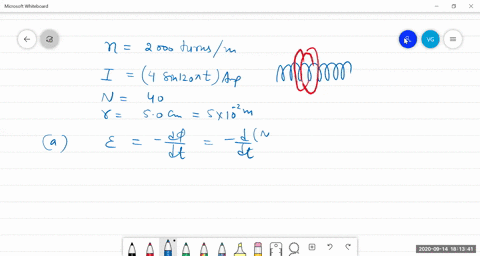 Microsoft Whiteboard
YG
n = 2000 turns/m
I = (4 Sin120πt) Amp
N = 40
r = 5.0cm = 5×10⁻²m
(a) ε = -dφ/dt = -d/dt (N
2020-09-14 18:13:41